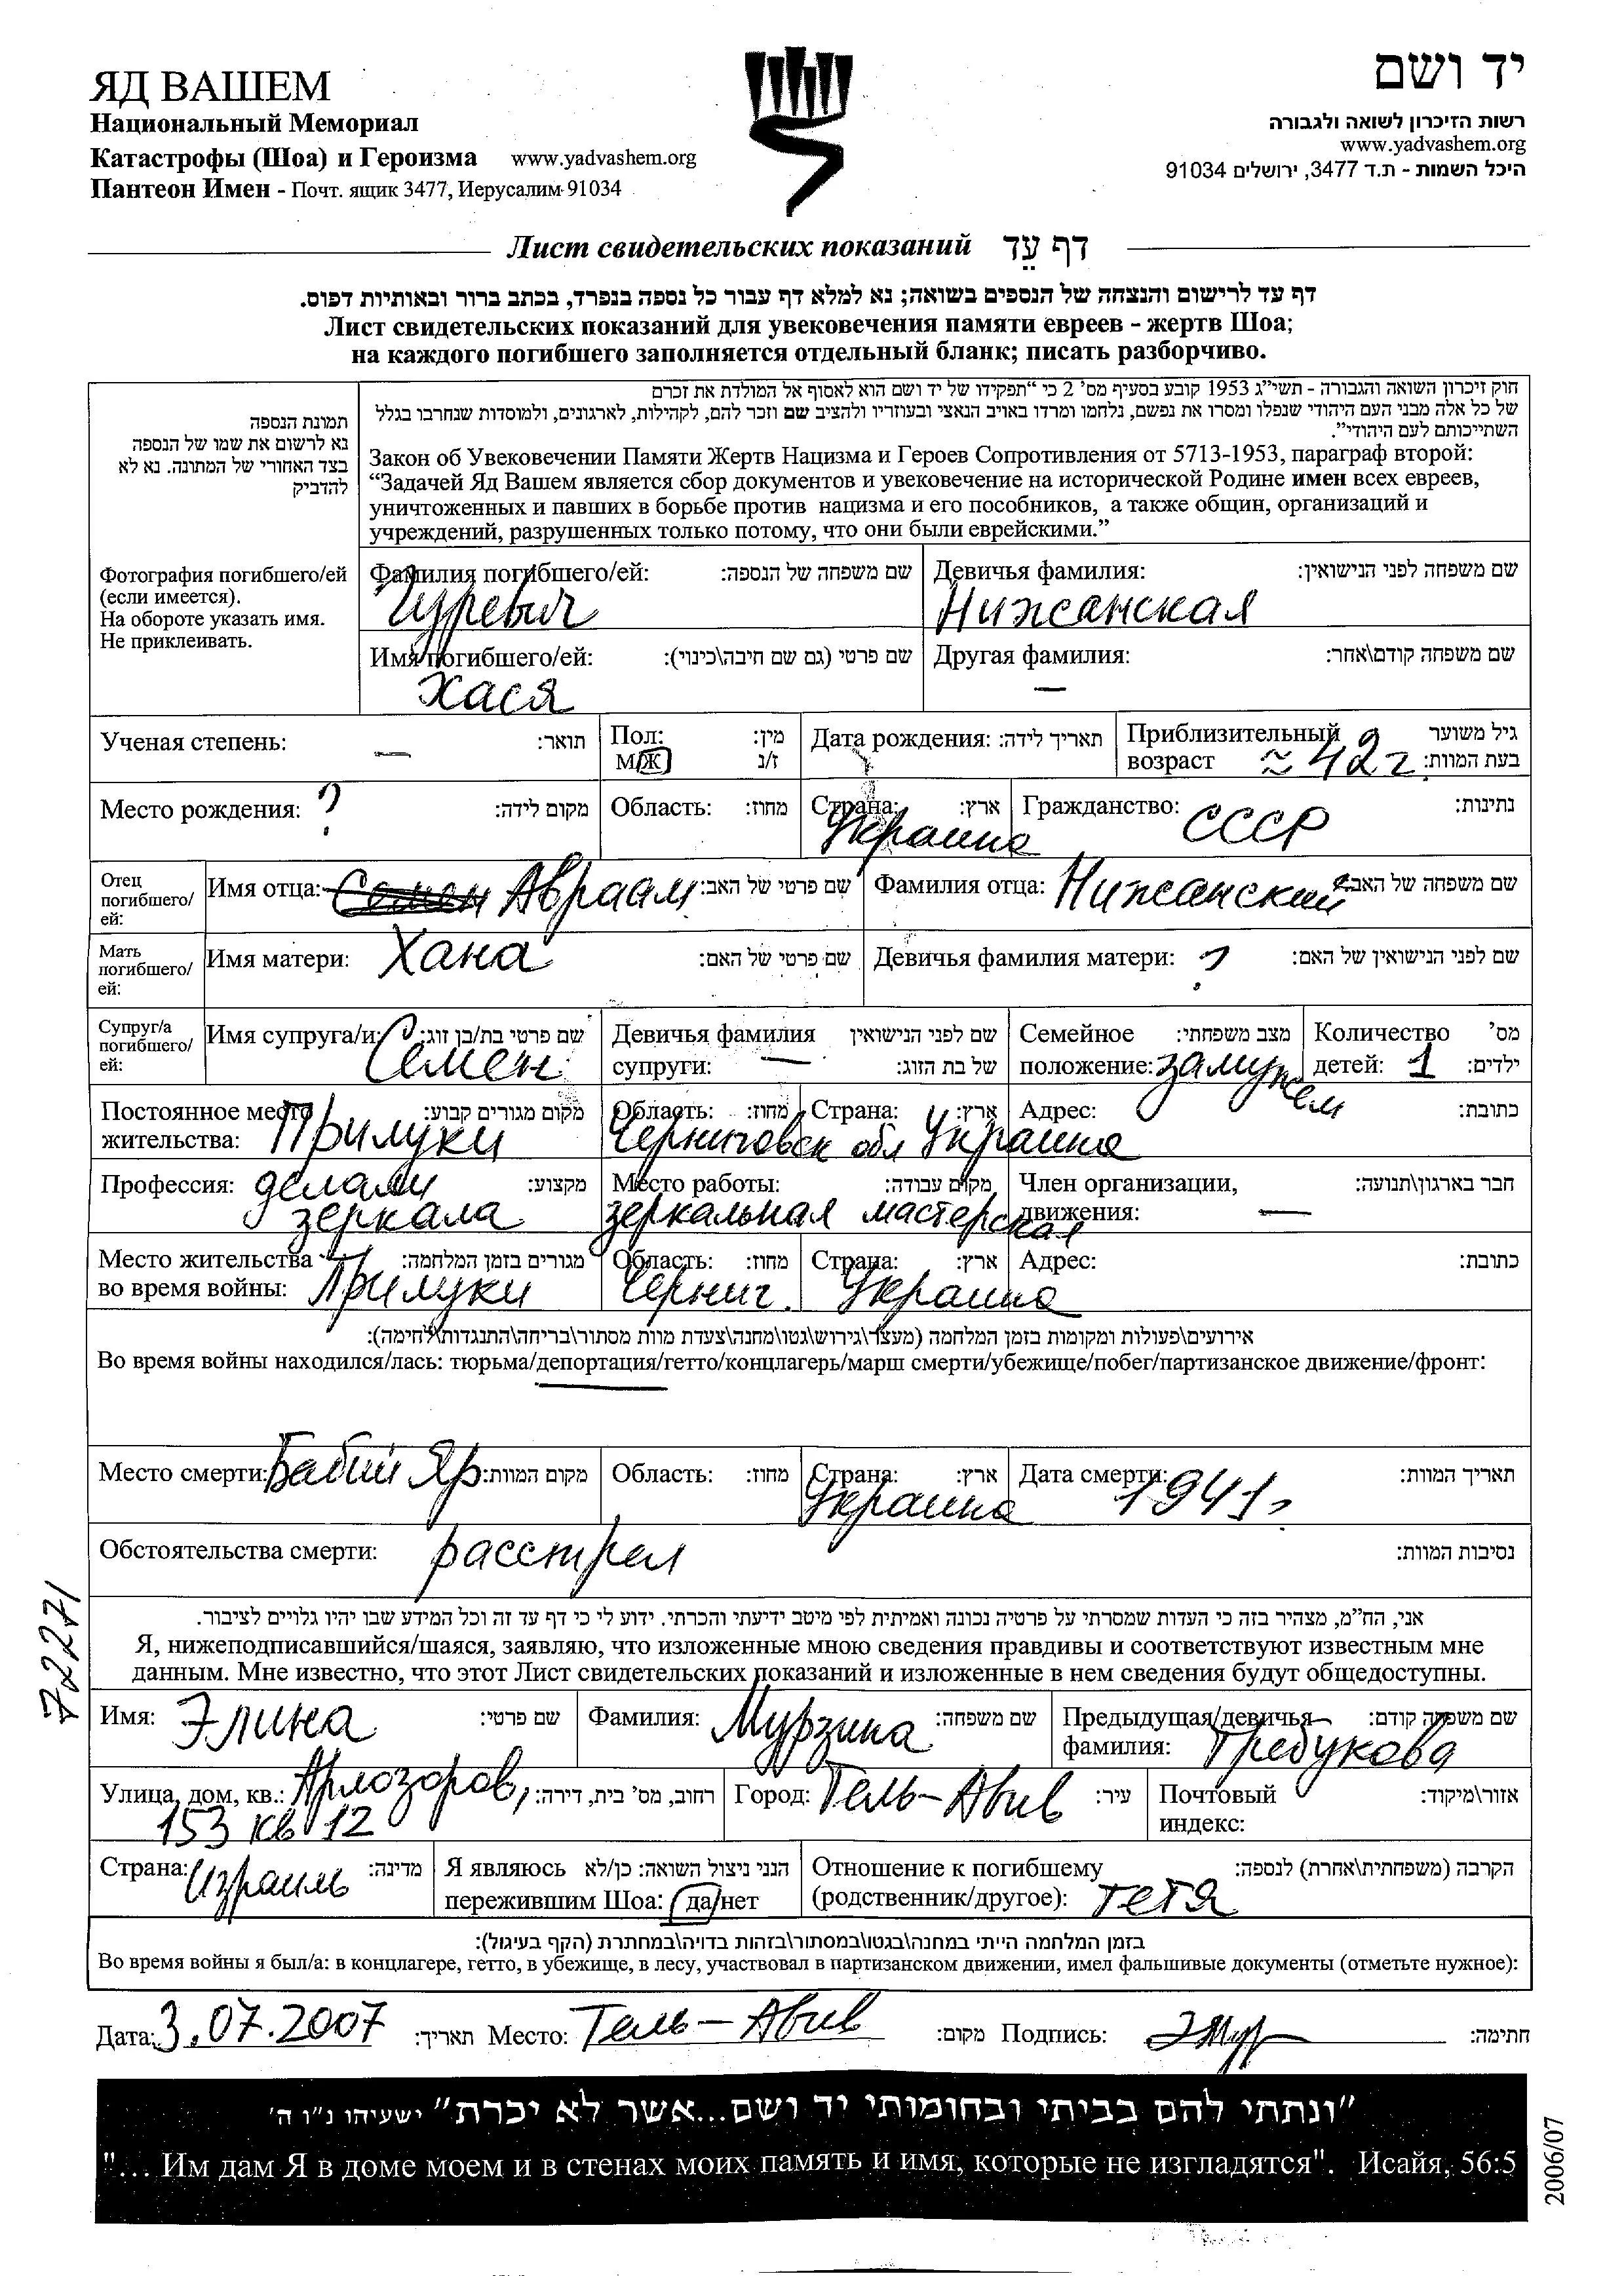 ЯД ВАШЕМ
Национальный Мемориал
Катастрофы (Шоа) и Героизма www.yadvashem.org
Пантеон Имен - Почт. ящик 3477, Иерусалим 91034
יד ושם
רשות הזיכרון לשואה ולגבורה
www.yadvashem.org
היכל השמות - ת.ד 3477, ירושלים 91034
Лист свидетельских показаний דף עֵד
דף עד לרישום והנצחה של הנספים בשואה; נא למלא דף עבור כל נספה בנפרד, בכתב ברור ובאותיות דפוס.
Лист свидетельских показаний для увековечения памяти евреев - жертв Шоа;
на каждого погибшего заполняется отдельный бланк; писать разборчиво.
תמונת הנספה
נא לרשום את שמו של הנספה
בצד האחורי של המתונה. נא לא
להדביק
Фотография погибшего/ей
(если имеется).
На обороте указать имя.
Не приклеивать.
חוק זיכרון השואה והגבורה - תשי״ג 1953 קובע בסעיף מס' 2 כי “תפקידו של יד ושם הוא לאסוף אל המולדת את זכרם
של כל אלה מבני העם היהודי שנפלו ומסרו את נפשם, נלחמו ומרדו באויב הנאצי ובעוזריו ולהציב שם וזכר להם, לקהילות, לארגונים, ולמוסדות שנחרבו בגלל
השתייכותם לעם היהודי”.
Закон об Увековечении Памяти Жертв Нацизма и Героев Сопротивления от 5713-1953, параграф второй:
“Задачей Яд Вашем является сбор документов и увековечение на исторической Родине имен всех евреев,
уничтоженных и павших в борьбе против нацизма и его пособников, а также общин, организаций и
учреждений, разрушенных только потому, что они были еврейскими.”
Фамилия погибшего/ей: שם משפחה של הנספה: Девичья фамилия: שם משפחה לפני הנישואין:
Гуревич Нижанская
Имя погибшего/ей: שם פרטי (גם שם חיבה\כינוי): Другая фамилия: שם משפחה קודם\אחר:
Хася —
Ученая степень: — תואר: Пол: מין: Дата рождения: תאריך לידה: Приблизительный גיל משוער
М/Ж ז/נ ? возраст ≈ 42 г. בעת המוות:
Место рождения: ? מקום לידה: Область: מחוז: Страна: ארץ: Украина Гражданство: СССР נתינות:
Отец
погибшего/
ей:
Имя отца: Семен Авраам שם פרטי של האב: Фамилия отца: Нижанский שם משפחה של האב:
Мать
погибшего/
ей:
Имя матери: Хана שם פרטי של האם: Девичья фамилия матери: ? שם לפני הנישואין של האם:
Супруг/а
погибшего/
ей:
Имя супруга/и: שם פרטי בת/בן זוג: Семен
Девичья фамилия שם לפני הנישואין
супруги: — של בת הזוג:
Семейное מצב משפחתי:
положение: замужем
Количество מס'
детей: 1 ילדים:
Постоянное место מקום מגורים קבוע: Область: מחוז: Страна: ארץ: Адрес: כתובת:
жительства: Прилуки Черниговск обл Украина
Профессия: делали מקצוע: Место работы: מקום עבודה: Член организации, חבר בארגון\תנועה:
зеркала зеркальная мастерская движения: —
Место жительства מגורים בזמן המלחמה: Область: מחוז: Страна: ארץ: Адрес: כתובת:
во время войны: Прилуки Черниг. Украина
אירועים\פעולות ומקומות בזמן המלחמה (מעצר\גירוש\גטו\מחנה\צעדת מוות מסתור\בריחה\התנגדות\לחימה):
Во время войны находился/лась: тюрьма/депортация/гетто/концлагерь/марш смерти/убежище/побег/партизанское движение/фронт:
Место смерти: Бабий Яр מקום המוות: Область: מחוז: Страна: ארץ: Украина Дата смерти: 1941г תאריך המוות:
Обстоятельства смерти: расстрел נסיבות המוות:
72271
אני, הח״מ, מצהיר בזה כי העדות שמסרתי על פרטיה נכונה ואמיתית לפי מיטב ידיעתי והכרתי. ידוע לי כי דף עד זה וכל המידע שבו יהיו גלויים לציבור.
Я, нижеподписавшийся/шаяся, заявляю, что изложенные мною сведения правдивы и соответствуют известным мне
данным. Мне известно, что этот Лист свидетельских показаний и изложенные в нем сведения будут общедоступны.
Имя: Элина שם פרטי: Фамилия: Мурзина שם משפחה: Предыдущая/девичья שם משפחה קודם:
фамилия: Требукова
Улица, дом, кв.: Арлозоров, רחוב, מס' בית, דירה: Город: Тель-Авив עיר: Почтовый אזור\מיקוד:
153 кв 12 индекс:
Страна: Израиль מדינה: Я являюсь הנני ניצול השואה: כן/לא
пережившим Шоа: да/нет
Отношение к погибшему הקרבה (משפחתית\אחרת) לנספה:
(родственник/другое): тетя
בזמן המלחמה הייתי במחנה\בגטו\במסתור\בזהות בדויה\במחתרת (הקף בעיגול):
Во время войны я был/а: в концлагере, гетто, в убежище, в лесу, участвовал в партизанском движении, имел фальшивые документы (отметьте нужное):
Дата: 3.07.2007 תאריך: Место: Тель-Авив מקום: Подпись: חתימה:
”ונתתי להם בביתי ובחומותי יד ושם...אשר לא יכרת” ישעיהו נ״ו ה'
"... Им дам Я в доме моем и в стенах моих память и имя, которые не изгладятся". Исайя, 56:5
2006/07